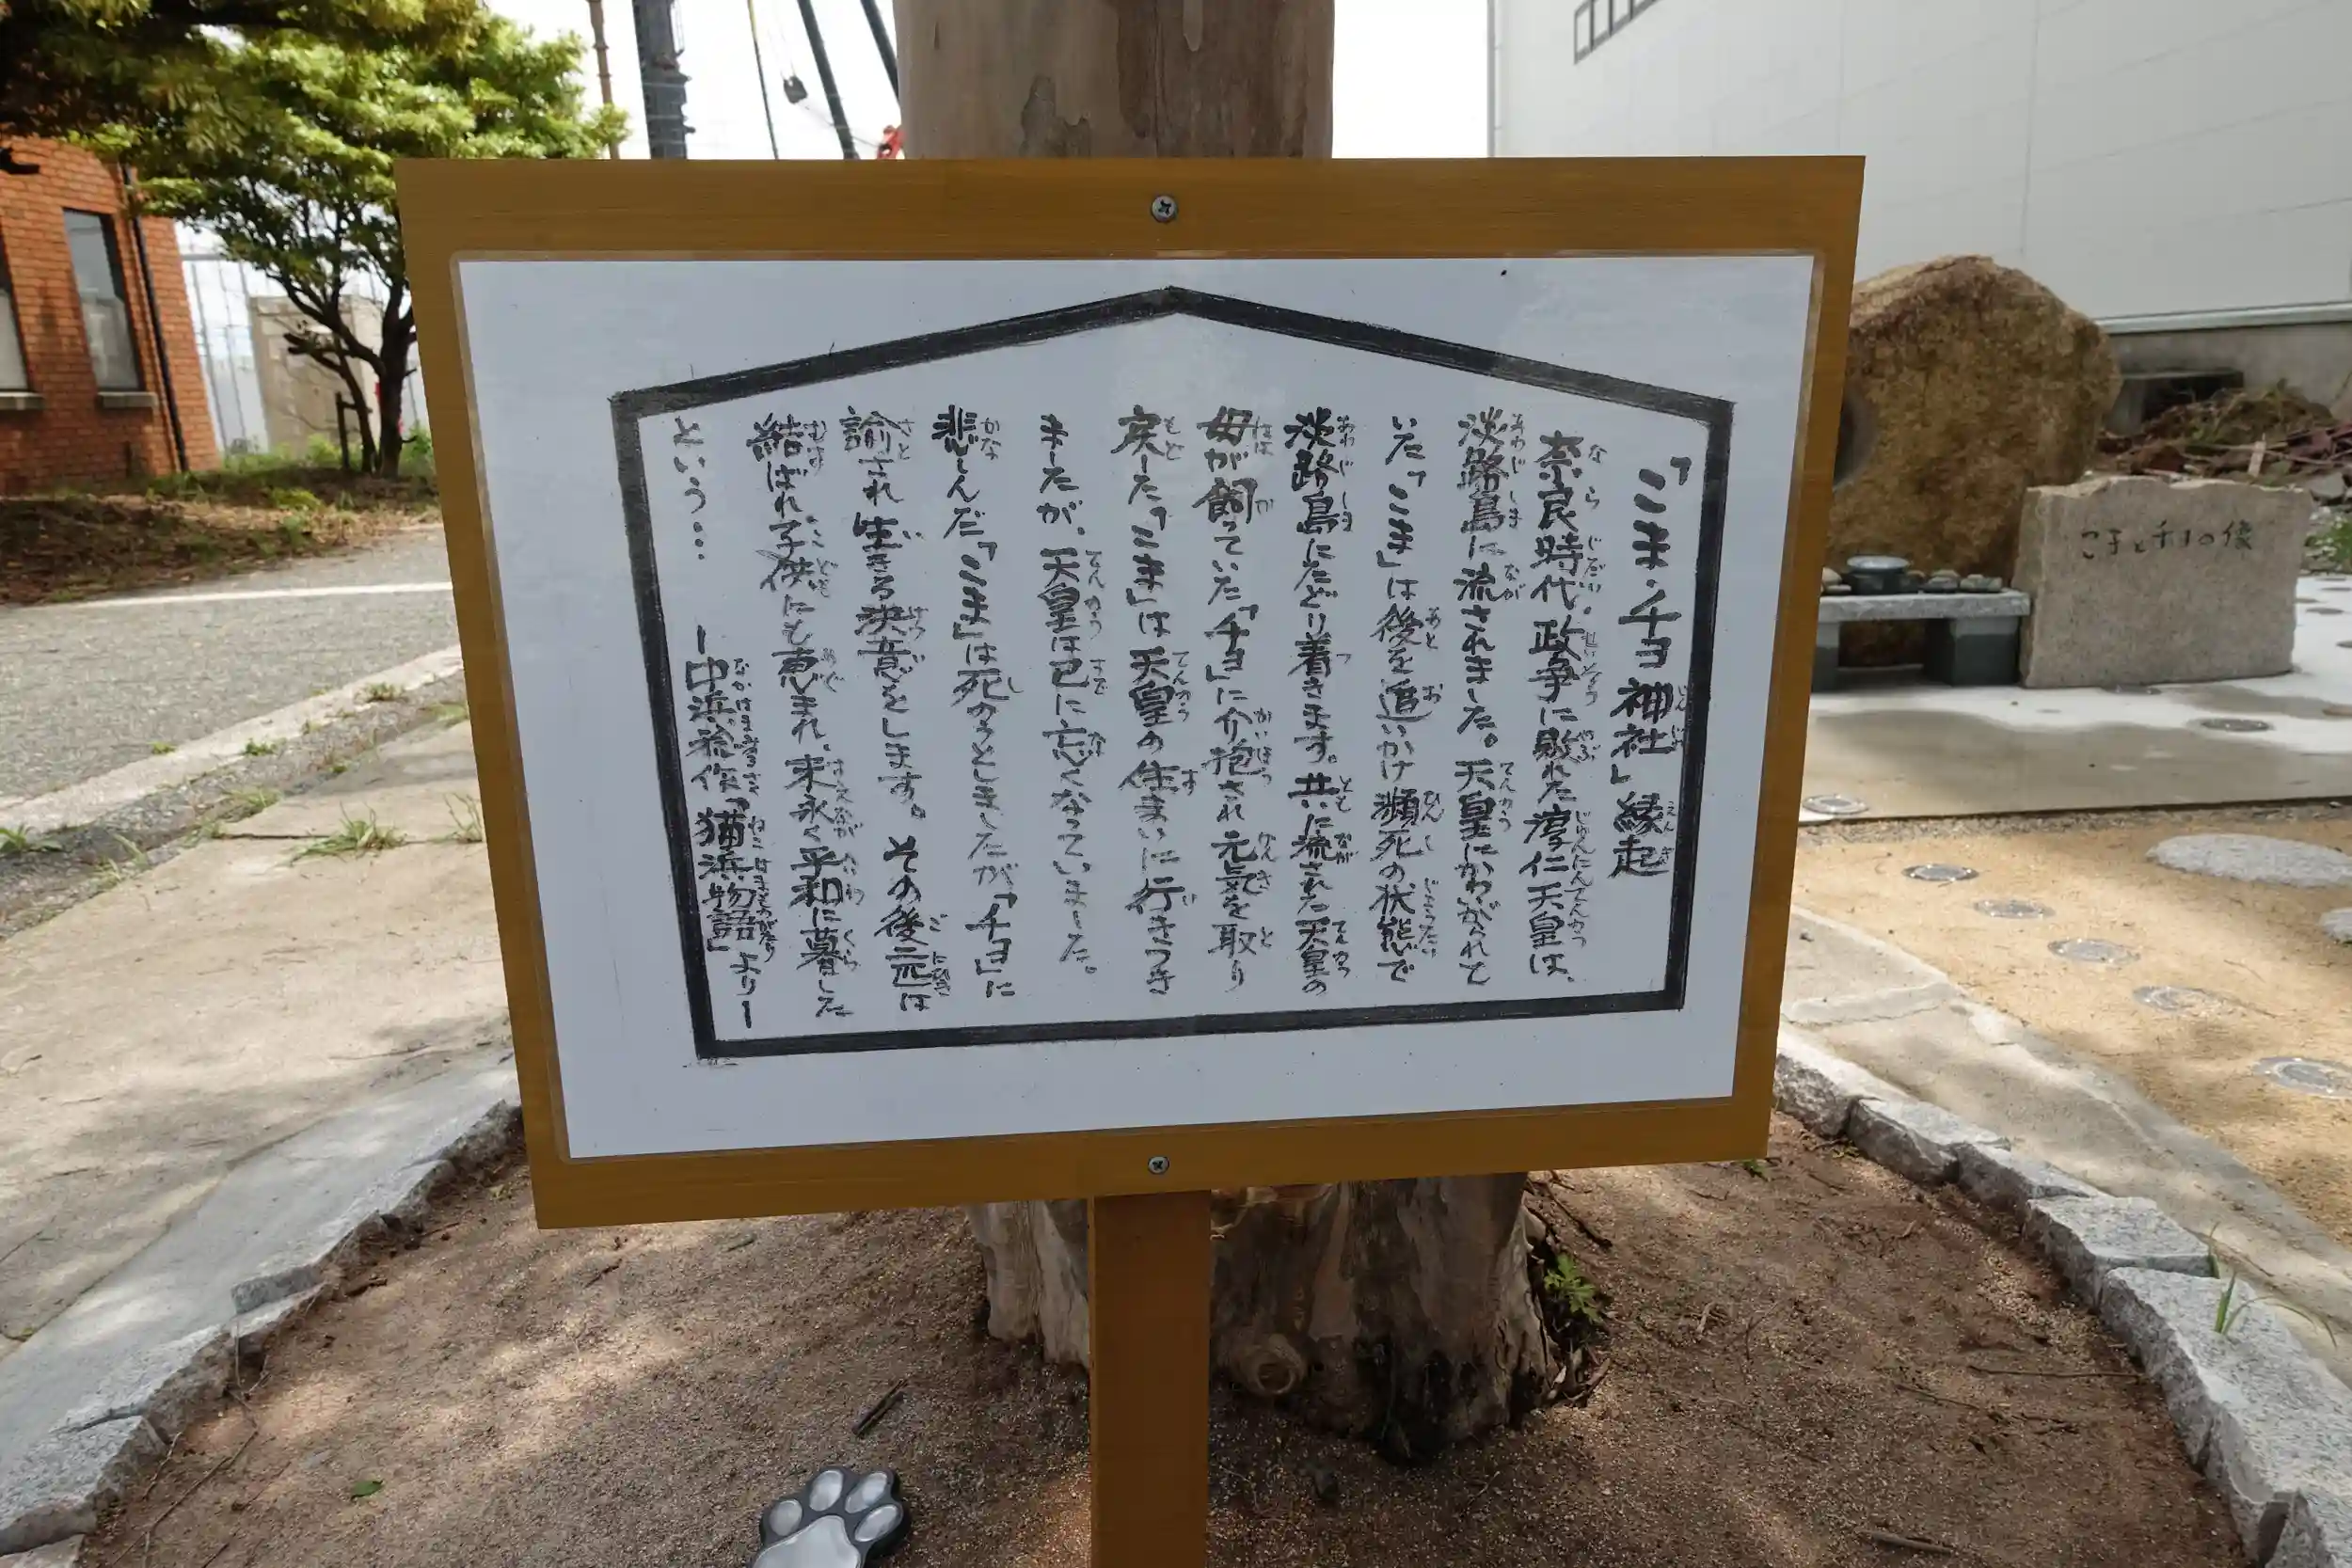 「こま・チョ神社」縁起
奈良時代、政争に敗れた淳仁天皇は、
淡路島に流されました。天皇にかわがられて
いた「こま」は後を追いかけ瀕死の状態で
淡路島にたどり着きます。共に流された天皇の
母が飼っていた「チョ」に介抱され元気を取り
戻した「こま」は天皇の住まいに行きつき
ましたが、天皇は已に亡くなっていました。
悲しんだ「こま」は死のうとしましたが「チョ」に
諭され生きる決意をします。その後二匹は
結ばれ、子供にも恵まれ、末永く平和に暮した
という…
ー中浜稔作「猫浜物語」よりー
こまとチョの像